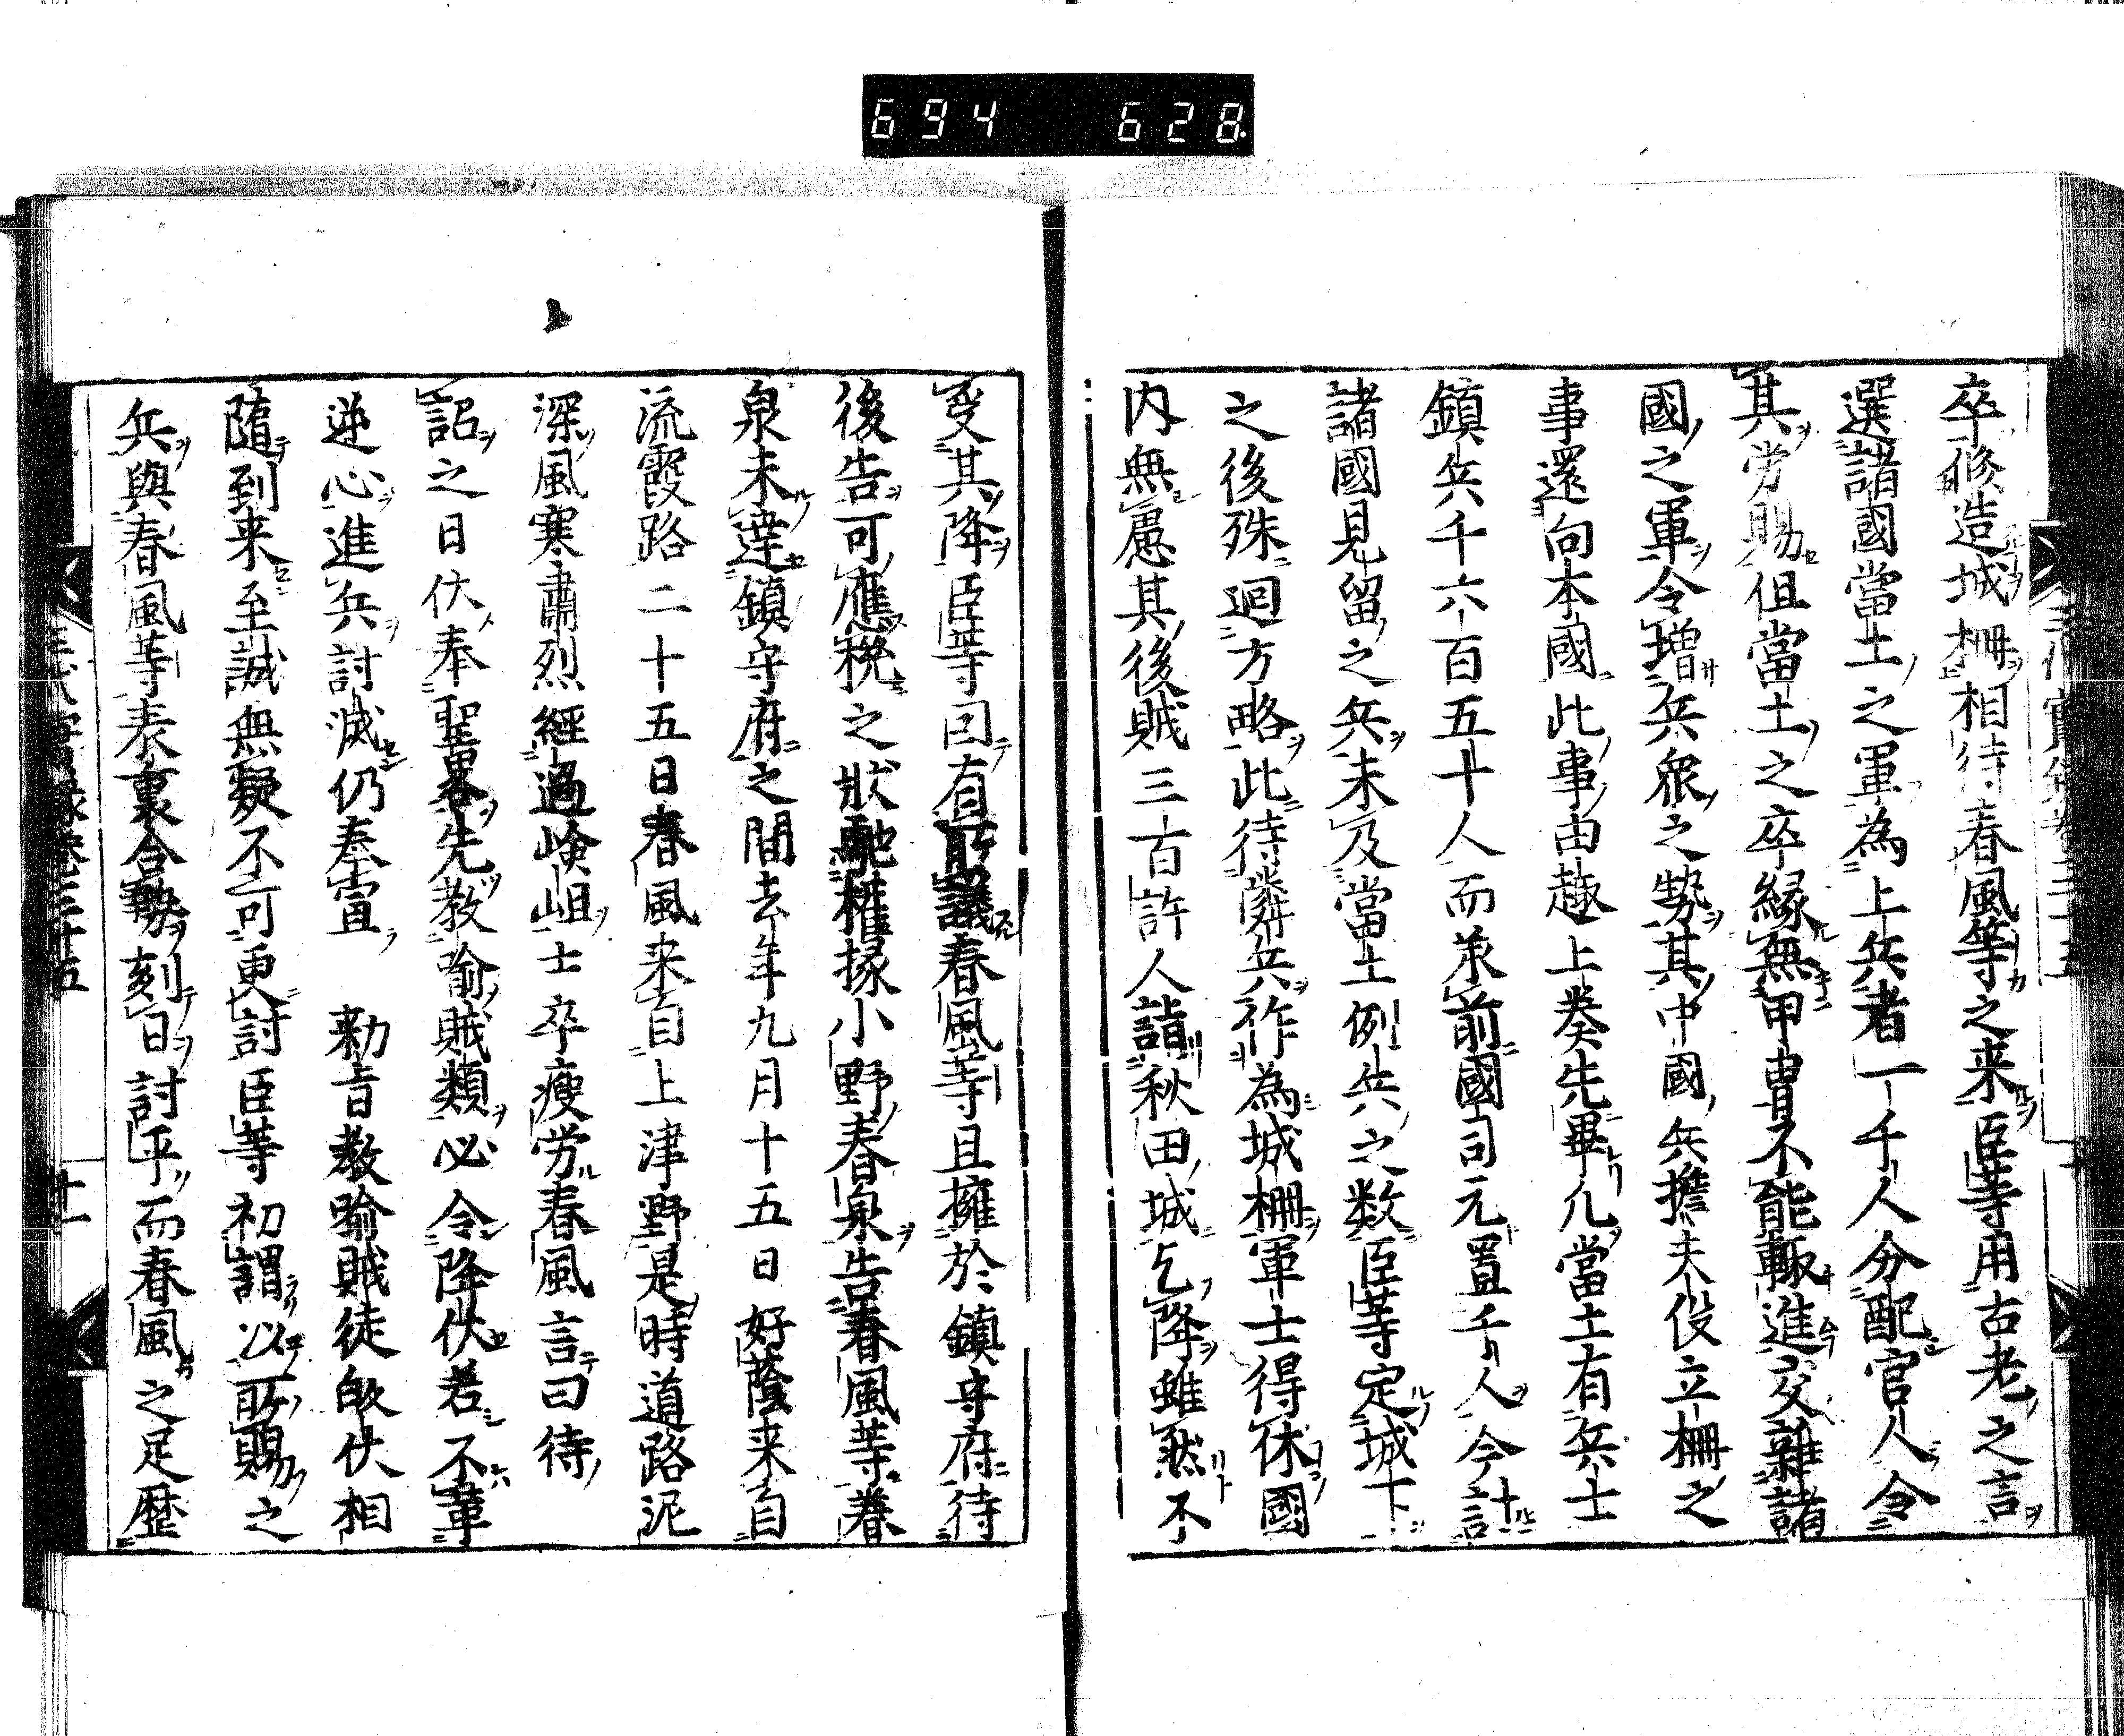 694 628
卒修造城柵相待春風等之来臣等用古老之言
選諸國當土之軍為上兵者一千人分配官人令
其労賜但當土之卒縁無甲冑不能輙進交雜諸
國之軍令増兵衆之勢其中國兵擔夫役立柵之
事還向本國此事由趣上奏先畢凡當土有兵士
鎮兵千六百五十人而承前國司元置千人今計
諸國見留之兵未及當土例兵之数臣等定城下
之後殊迴方略此待隣兵作為城柵軍士得休國
内無慮其後賊三百許人詣秋田城乞降雖然不
受其降臣等曰有所議春風等且擁於鎮守府待
後告可應機之狀馳權掾小野春泉告春風等春
泉未達鎮守府之間去年九月十五日好蔭来自
流霞路二十五日春風来自上津野是時道路泥
深風寒肅烈經過嶮岨士卒痩労春風言曰待
詔之日伏奉聖畧先教喻賊類必令降伏若不革
逆心進兵討滅仍奉宣 勅旨教喻賊徒
伏相
隨到来至誠無疑不可更討臣等初謂以所賜之
兵與春風等表裏合勢刻日討平而春風之足歴
三代實録巻三十五 十一